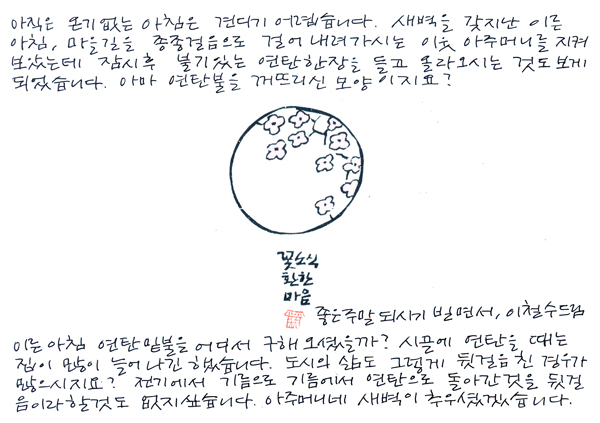 아직은 온기 없는 아침은 견디기 어렵습니다. 새벽을 갖지난 이른
아침, 마을길을 종종걸음으로 걸어 내려가시는 이웃 아주머니를 지켜
보았는데 잠시후 불기있는 연탄한장을 들고 올라오시는 것도 보게
되었습니다. 아마 연탄불을 꺼뜨리신 모양이지요?
꽃소식
환한
마음
좋은주말 되시기 빌면서, 이철수드림
이른 아침 연탄 밑불을 어디서 구해 오셨을까? 시골에 연탄을 때는
집이 많이 늘어나긴 했습니다. 도시의 삶도 그렇게 뒷걸음친 경우가
많으시지요? 전기에서 기름으로 기름에서 연탄으로 돌아간것을 뒷걸
음이라 할것도 없지싶습니다. 아주머니네 새벽이 추우셨겠습니다.